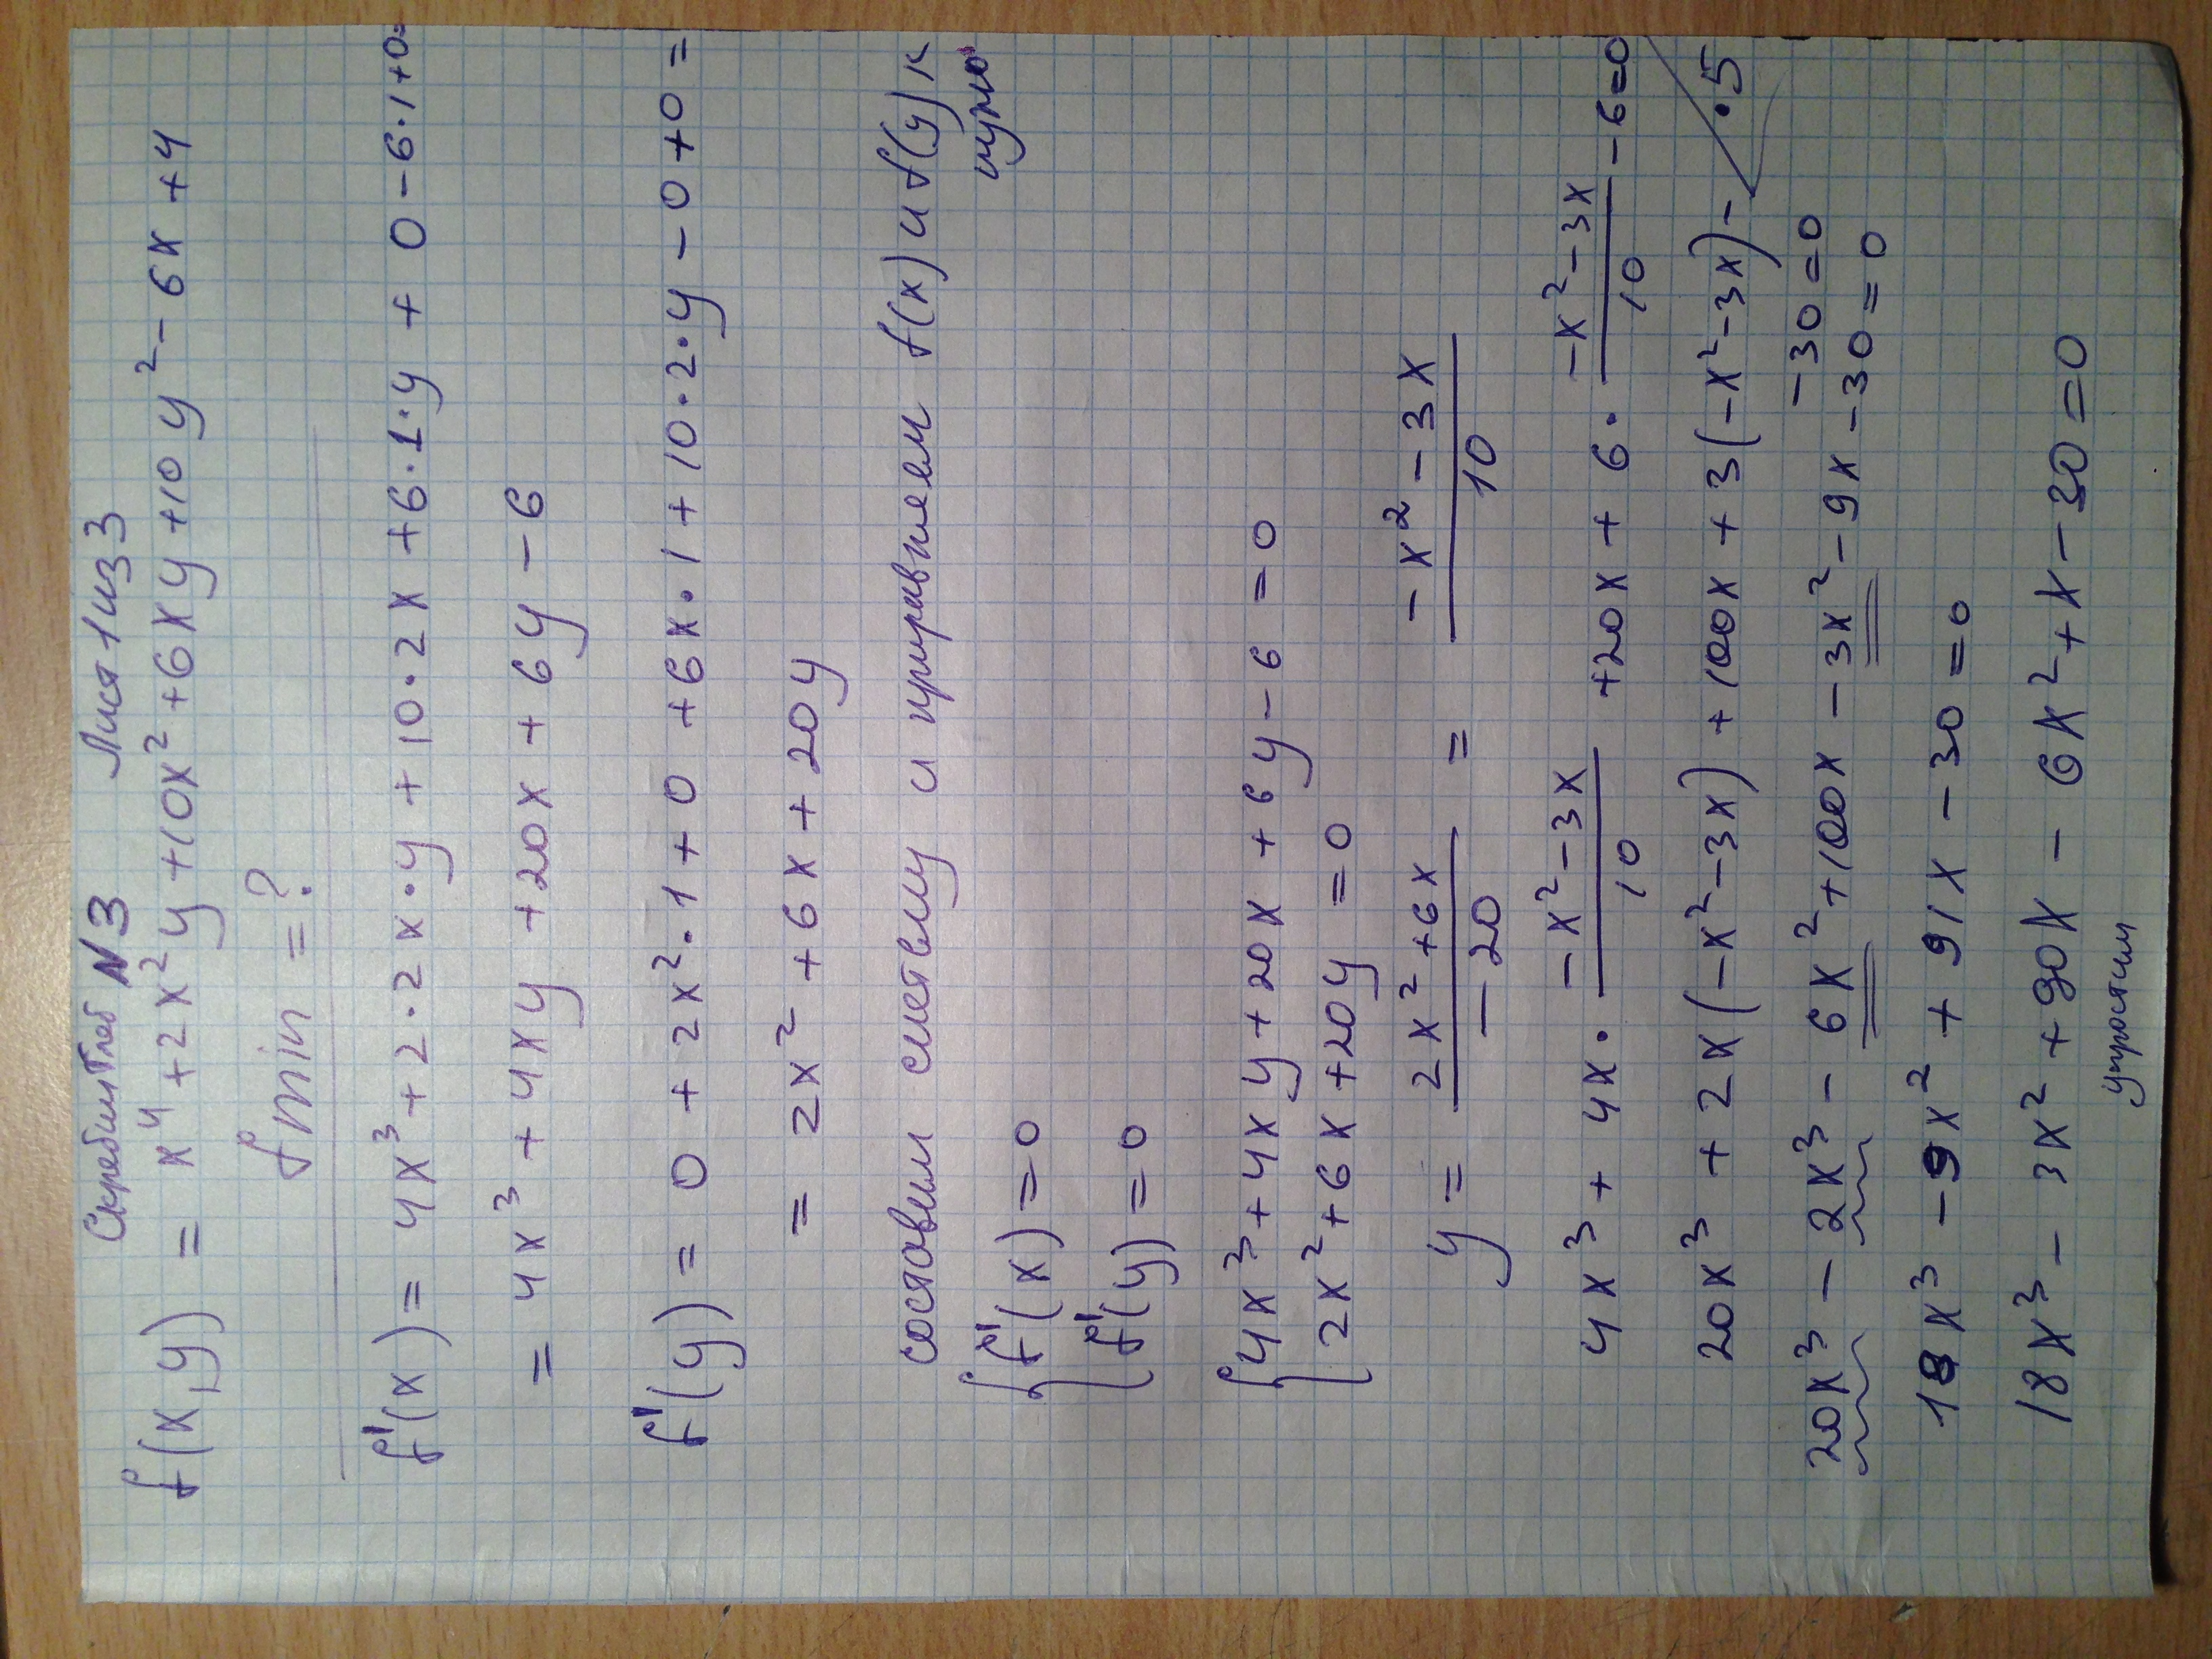 Скребцы Глеб N3 Лист 1 из 3
f(x,y) = x⁴ + 2x²y + 10x² + 6xy + 10y² - 6x + 4
fmin = ?
f'(x) = 4x³ + 2·2x·y + 10·2x + 6·1·y + 0 - 6·1 + 0 =
= 4x³ + 4xy + 20x + 6y - 6
f'(y) = 0 + 2x²·1 + 0 + 6x·1 + 10·2·y - 0 + 0 =
= 2x² + 6x + 20y
составим систему и приравняем f(x) и f(y) к
нулю
{ f'(x) = 0
f'(y) = 0
{ 4x³ + 4xy + 20x + 6y - 6 = 0
2x² + 6x + 20y = 0
y = (2x² + 6x)/(-20) = (-x² - 3x)/10
4x³ + 4x · (-x² - 3x)/10 + 20x + 6 · (-x² - 3x)/10 - 6 = 0
20x³ + 2x(-x² - 3x) + 100x + 3(-x² - 3x) - ·5
-30 = 0
20x³ - 2x³ - 6x² + 100x - 3x² - 9x - 30 = 0
18x³ - 9x² + 91x - 30 = 0
18x³ - 3x² + 90x - 6x² + x - 30 = 0
упростим